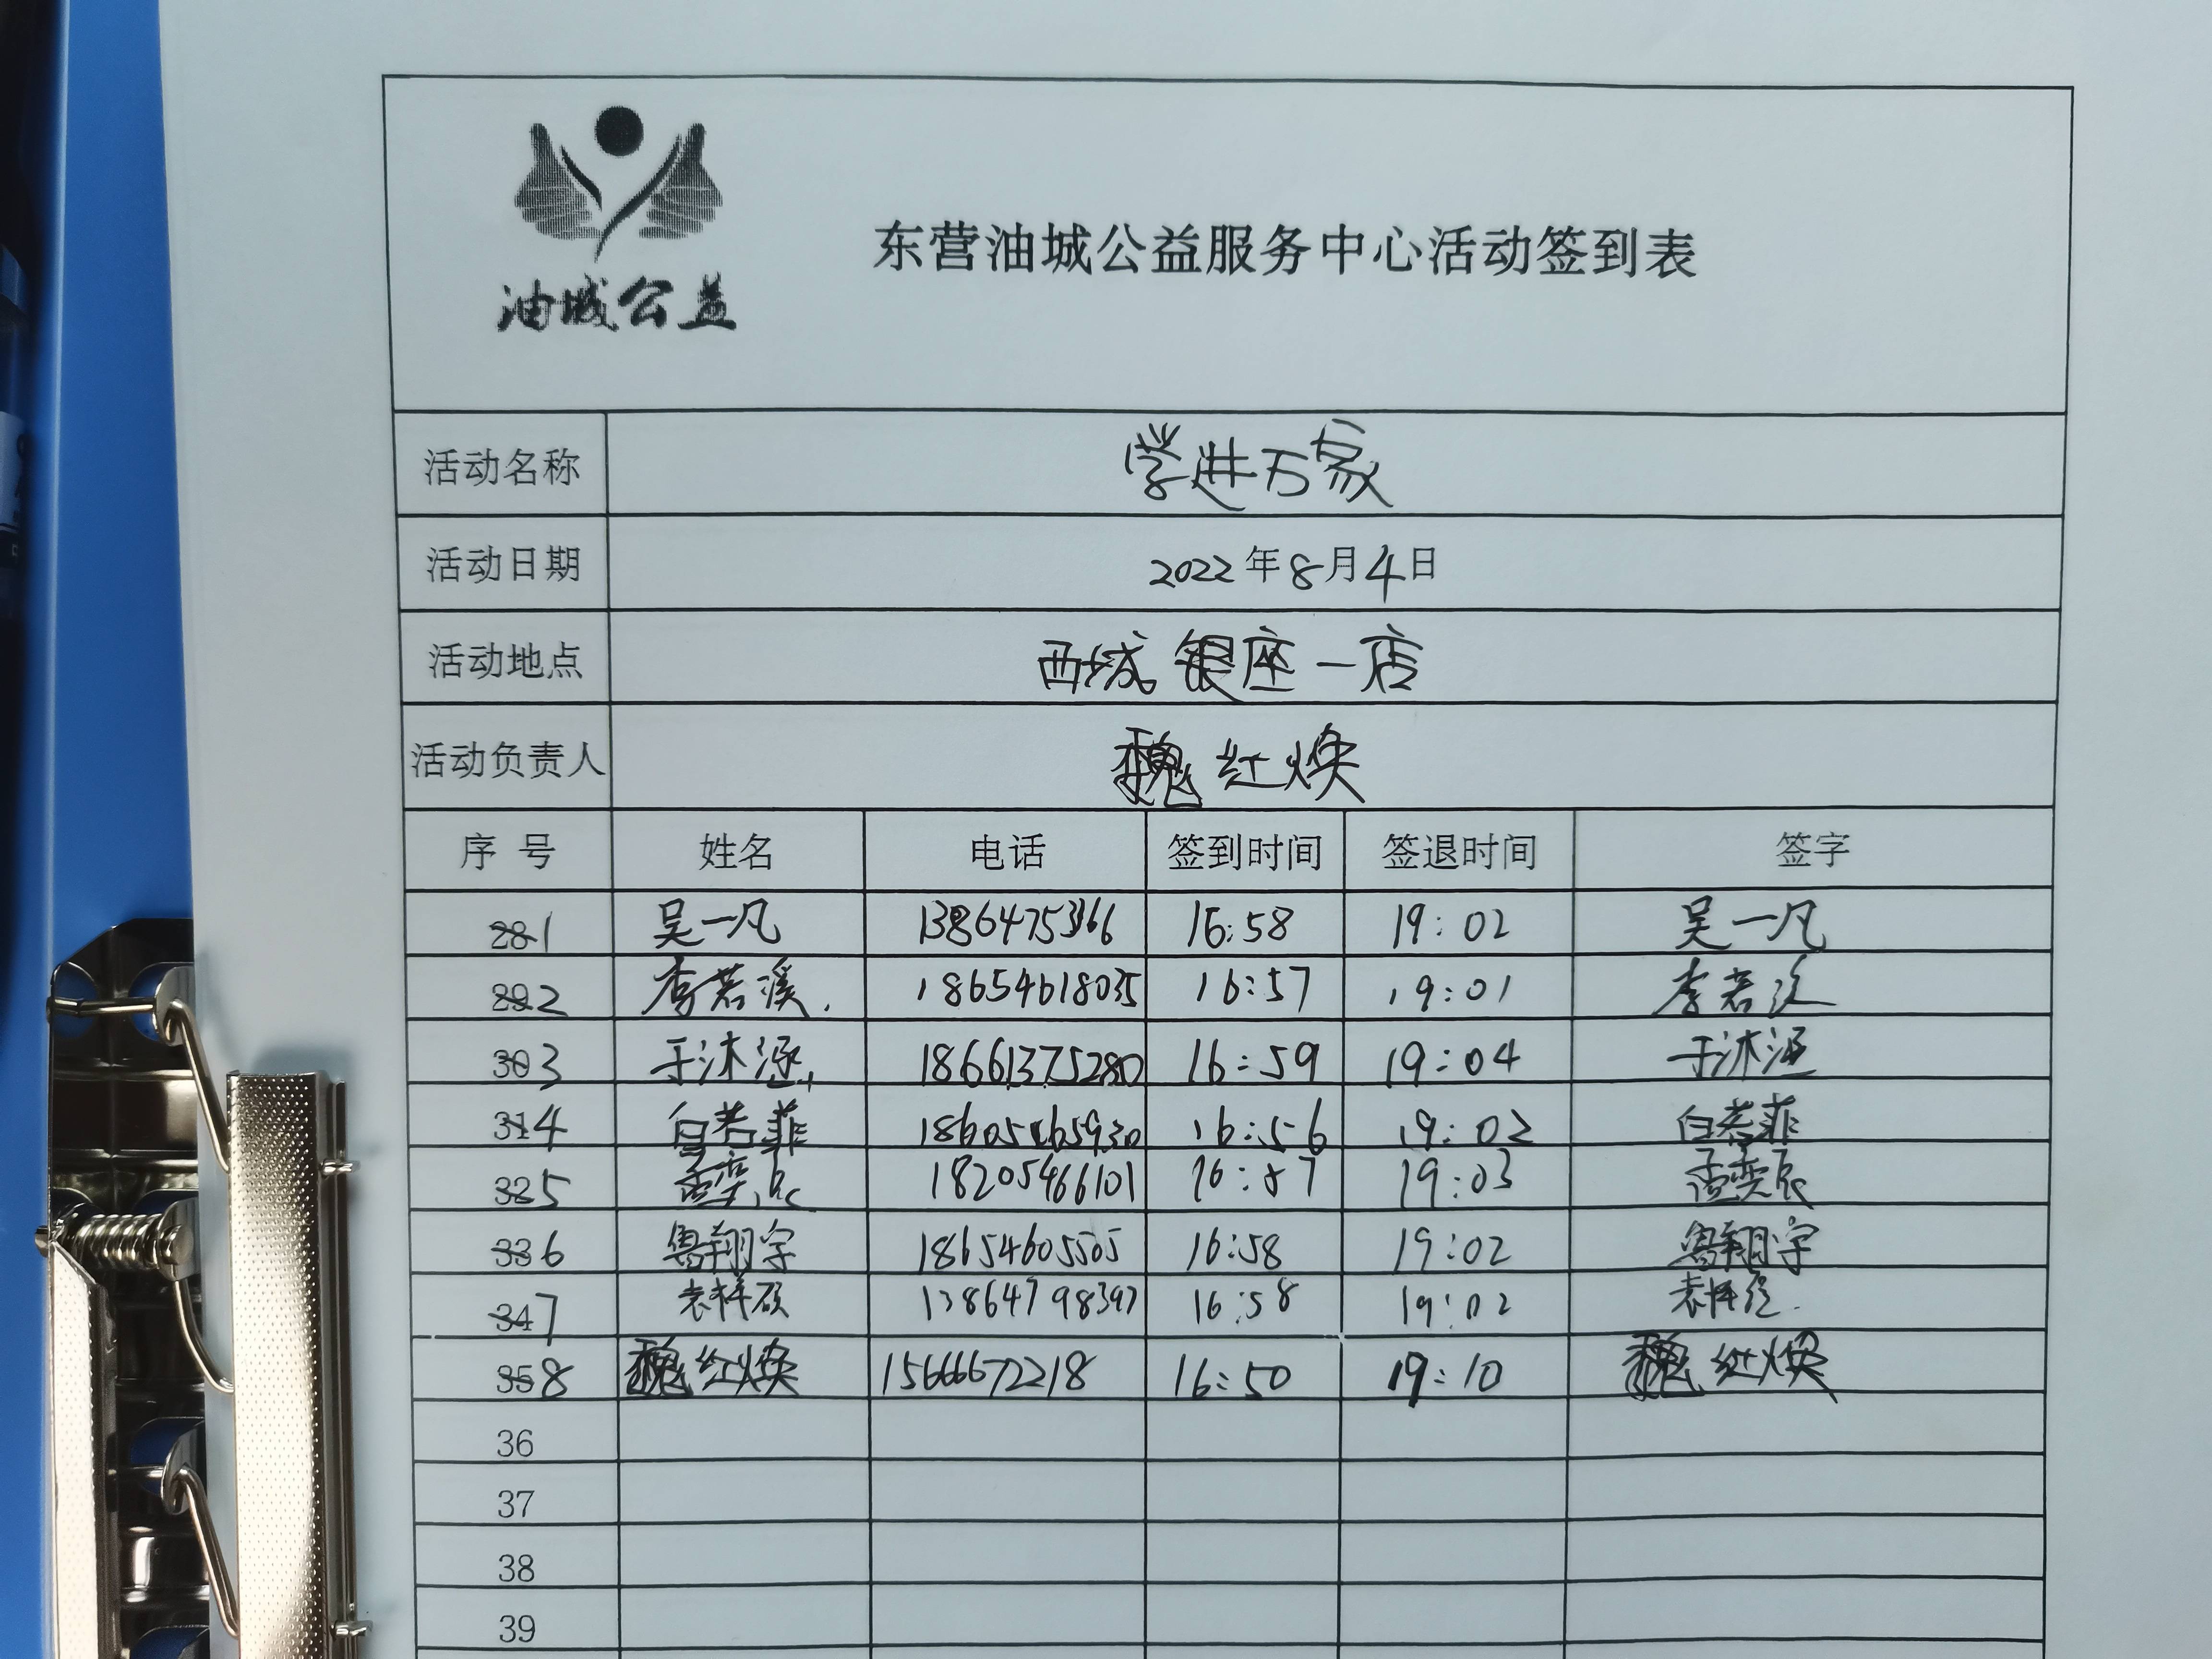 油城公益
东营油城公益服务中心活动签到表
活动名称 学进万家
活动日期 2022年8月4日
活动地点 西城银座一店
活动负责人 魏红焕
序号 姓名 电话 签到时间 签退时间 签字
281 吴一凡 13864753166 16:58 19:02 吴一凡
292 李若溪. 18654618035 16:57 19:01 李若溪
303 于沐涵 18661375280 16:59 19:04 于沐涵
314 白若菲 18605465930 16:56 19:02 白若菲
325 孟奕辰 18205466101 16:57 19:03 孟奕辰
336 鲁翔宇 18654605505 16:58 19:02 鲁翔宇
347 13864798397 16:58 19:02
358 魏红焕 15666672218 16:50 19:10 魏红焕
36
37
38
39